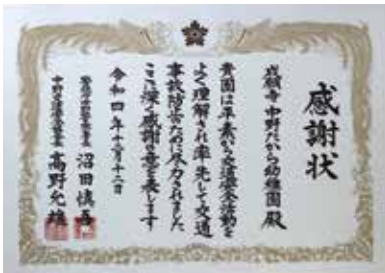 感謝状
成願寺中野たから幼稚園殿
貴園は平素から交通安全活動を
よく理解され率先して交通
事故防止のために尽力されました
ここに深く感謝の意を表します
令和四年十二月十二日
沼田慎吾
髙野允雄